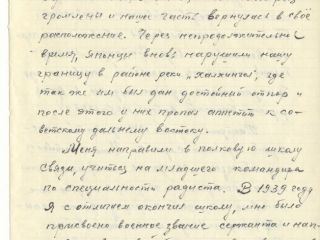 громлены и наша часть вернулась в своё
расположение. Через непродолжительное
время, Японцы вновь нарушили нашу
границу в районе реки „Халхингол", где
так же им был дан достойный отпор и
после этого у них пропал аппетит к со-
ветскому дальнему востоку.
Меня направили в полковую школу
связи, учитсь на младшего командира
по специальности радиста. В 1939 году
Я с отличаем окончил школу, мне было
присвоено военное звание сержанта и нап-